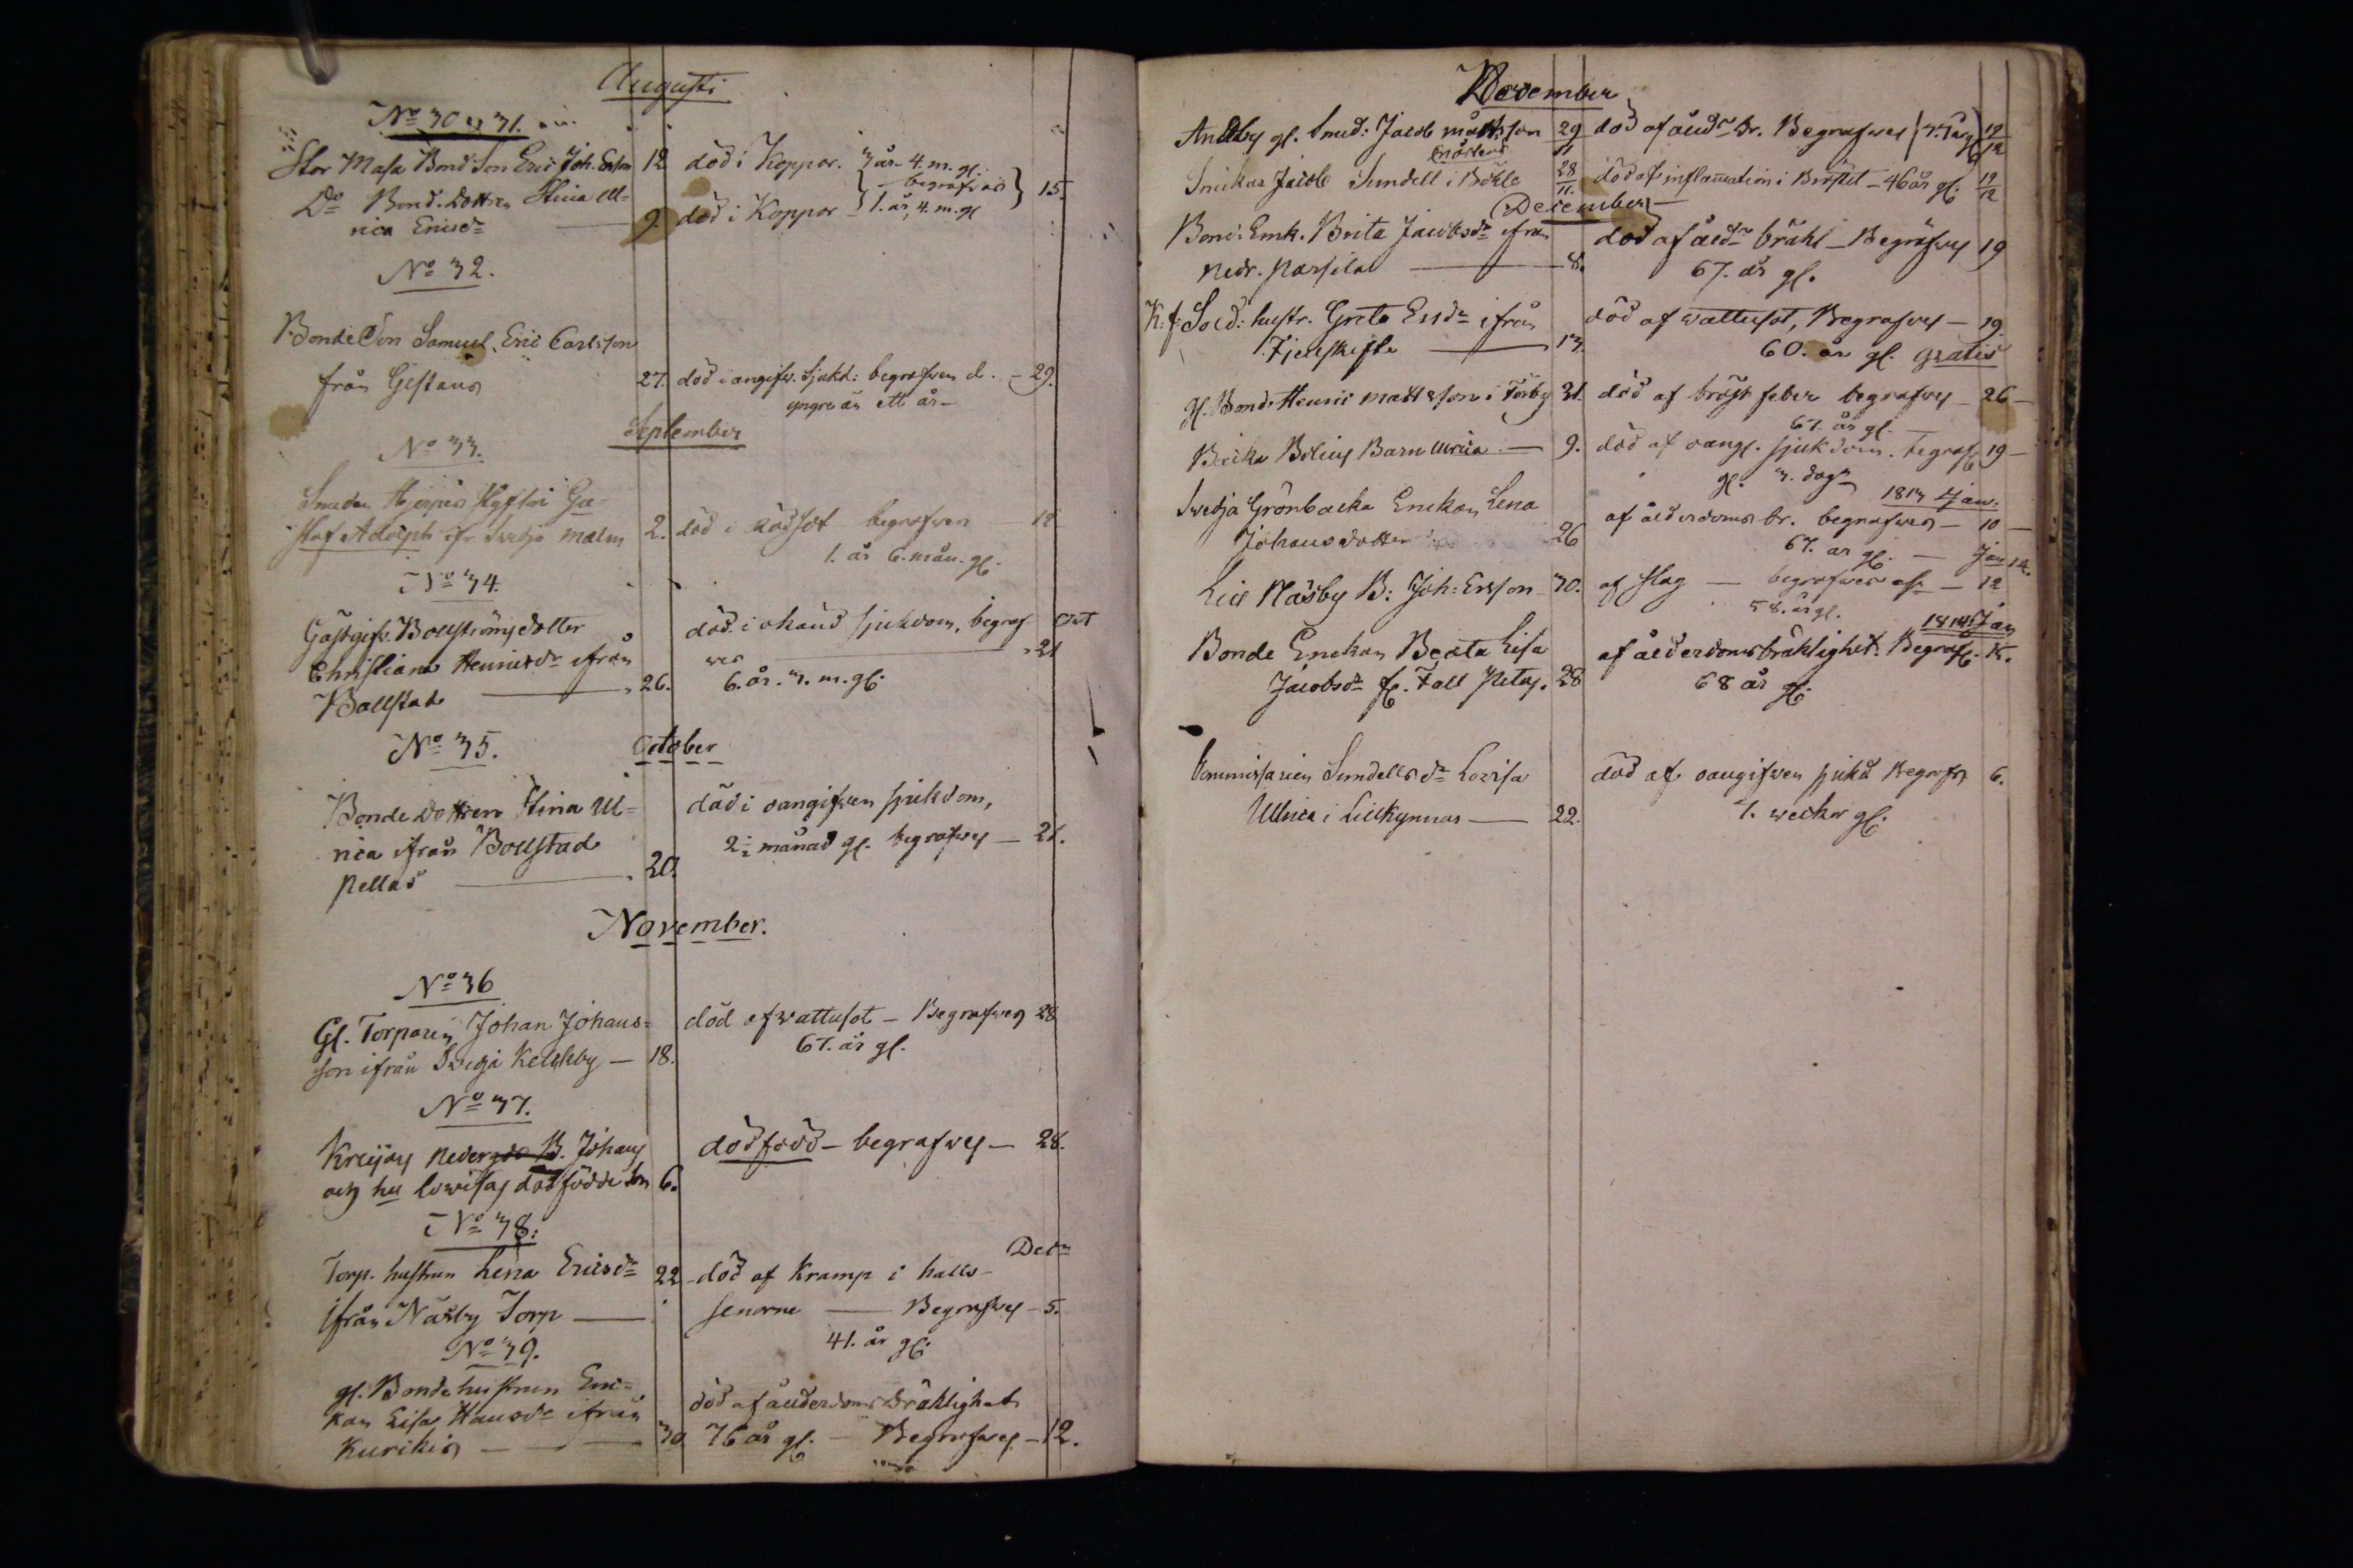 Augusti
No 30 o 31.
Stor Masa Bond Son Eric Joh. Erson 12 död i Koppor. 3 år 4. m. gl.
begrafvas 15.
Do Bond. Dottren Stina Ul-
rica Ericsdr 9. död i Koppor 1. år, 4. m. gl
No 32.
Bonde Son Samuel Eric Carlsson
från Gestans 27. död i oangifv. Sjukd: begrafven d. 29.
yngre än ett år
September
No 33.
Smeden Hjerpes Gu-
staf Adolph ifr Svedja malm 2. död i rödsot begrafven 12
1. år 6. mån. gl.
No 34.
Gästgifv. Bollströms dotter
död i okänd sjukdom, begraf Oct
Christiana Henricsdr ifrån
ven 21
Bollstad 26. 6. år. 3. m. gl.
No 35.
October
Bonde Dottren Stina Ul-
död i oangifven sjukdom,
rica ifrån Bollstad
2½ månad gl. begrafven 21.
Pellas 20.
November.
No 36
Gl. Torparen Johan Johans-
son ifrån Svedja Kelkby 18.
död af vattusot - Begrafven 28
67. år gl.
No 37.
Kreijars neder B. Johans
och hu Lovisas dödfödde son 6.
dödfödd - begrafven 28.
No 38:
Decr
Torp. hustrun Lena Ericsdr 22 död af Kramp i hals
ifrån Näsby Torp
senorne Begrafven 5.
41. år gl.
No 39.
gl. Bonde hustrun En-
kan Lisa Hansdr ifrån
Kurikis 30
död af ålderdoms Bräklighet
76 år gl. Begrafven 12.
November
Andby gl. Smed: Jacob Mattsson 29/11 död af åldr Br. Begrafven 77 år gl 12/12
Mårtens
Snickar Jacob Sundell i Böhle 28/11. död af inflamation i Bröstet - 46 år gl. 19/12
December
Bond. Enk. Brita Jacobsdr ifrån
nedr. Parsila 8.
död af åldr bräkl - Begrafven 19
67. år gl.
K. f: Sold: hustr. Greta Ersdr ifrån
Fjelskifte 13.
död af Vattusot, Begrafven 19.
60. år gl. gratis
gl. Bond. Henric Mattsson i Torby 21. död af bröst feber begrafven 26
67. år gl.
Barn Ulrica 9. död af oangf. sjukdom. begraf 19
gl. 3. dagr
Svedja Grönbacka Enkan Lena
Johansdotter 26
1813 Jan.
af ålderdoms br. begrafven 10
67. år gl.
Jan
Lill Näsby B: Joh: Ersson 30. af slag begrafven 12
58. år gl.
Bonde Enkan Beata Lisa
Jacobsdr fr. Fall Petas. 28
af ålderdomsbräklighet. Begraf.
68 år gl.
Commissarien Sundells dr Lovisa
Ulrica i Lillkynnas 22.
död af oangifven sjukd Begrafv 6.
7. weckor gl.